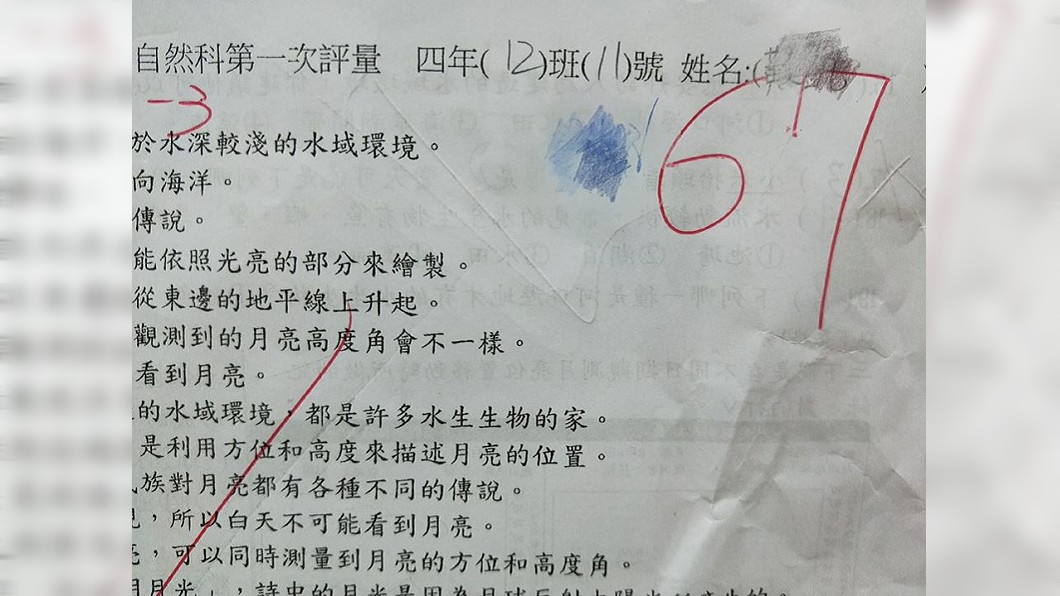 自然科第一次評量 四年(12)班(11)號 姓名:(
67
-3
於水深較淺的水域環境。
向海洋。
傳說。
能依照光亮的部分來繪製。
從東邊的地平線上升起。
觀測到的月亮高度角會不一樣。
看到月亮。
的水域環境,都是許多水生生物的家。
是利用方位和高度來描述月亮的位置。
族對月亮都有各種不同的傳說。
,所以白天不可能看到月亮。
,可以同時測量到月亮的方位和高度角。
明月光」,詩中的月光是因為月球反射太陽光所產生的。